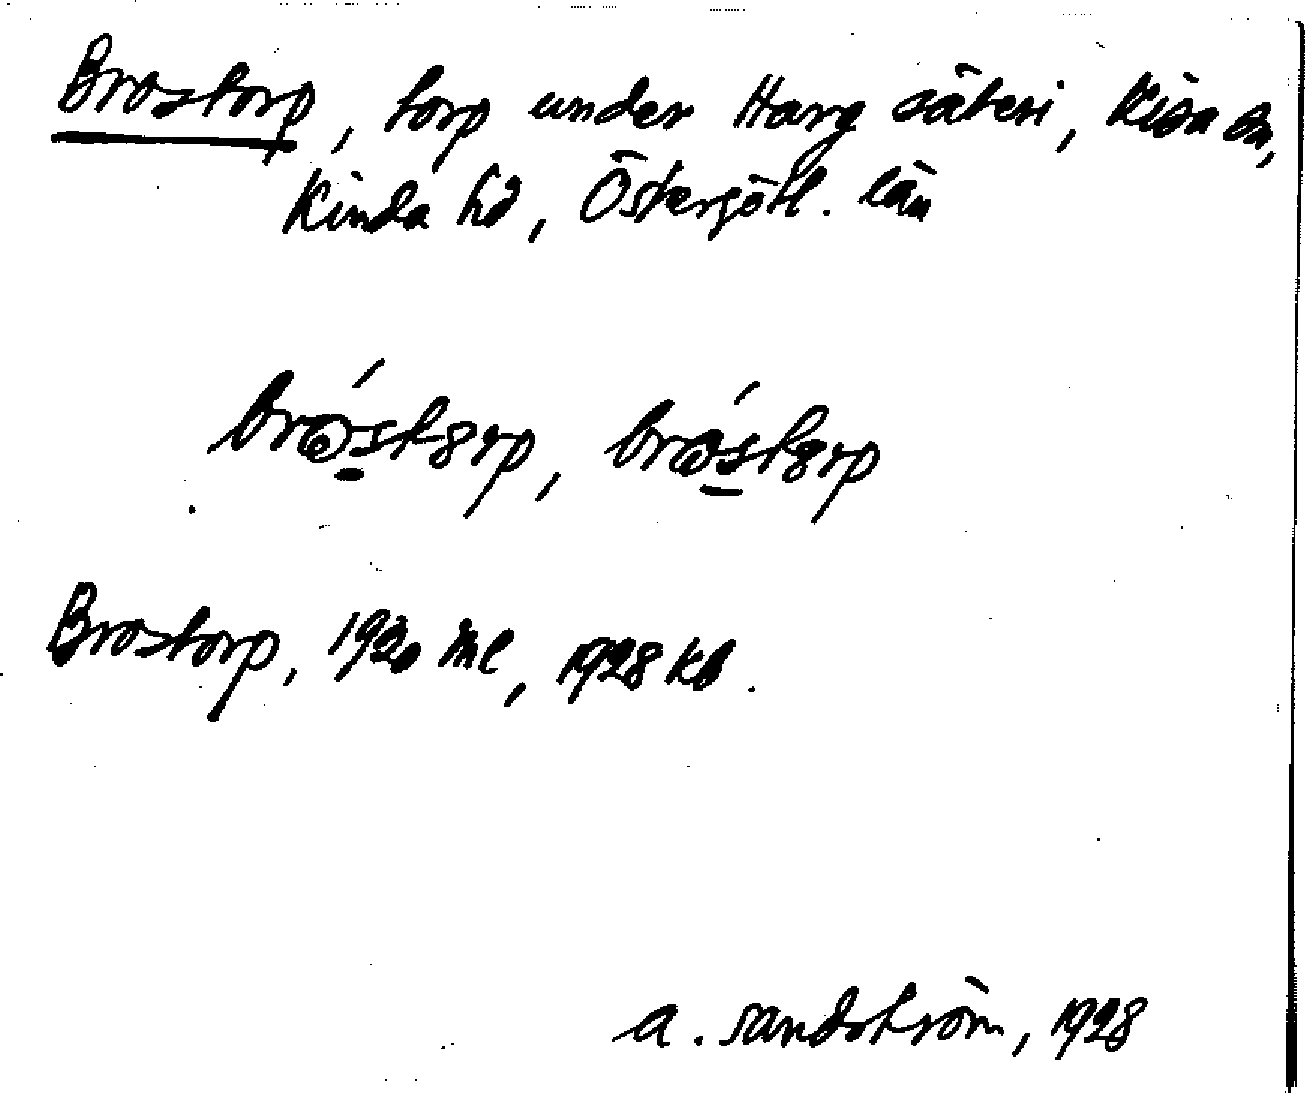 Brostorp, torp under Harg säteri, Kisa sn,
Kinda hd, Östergötl. län
Brostorp, 1920 ml, 1928 kb.
A. Sandström, 1928